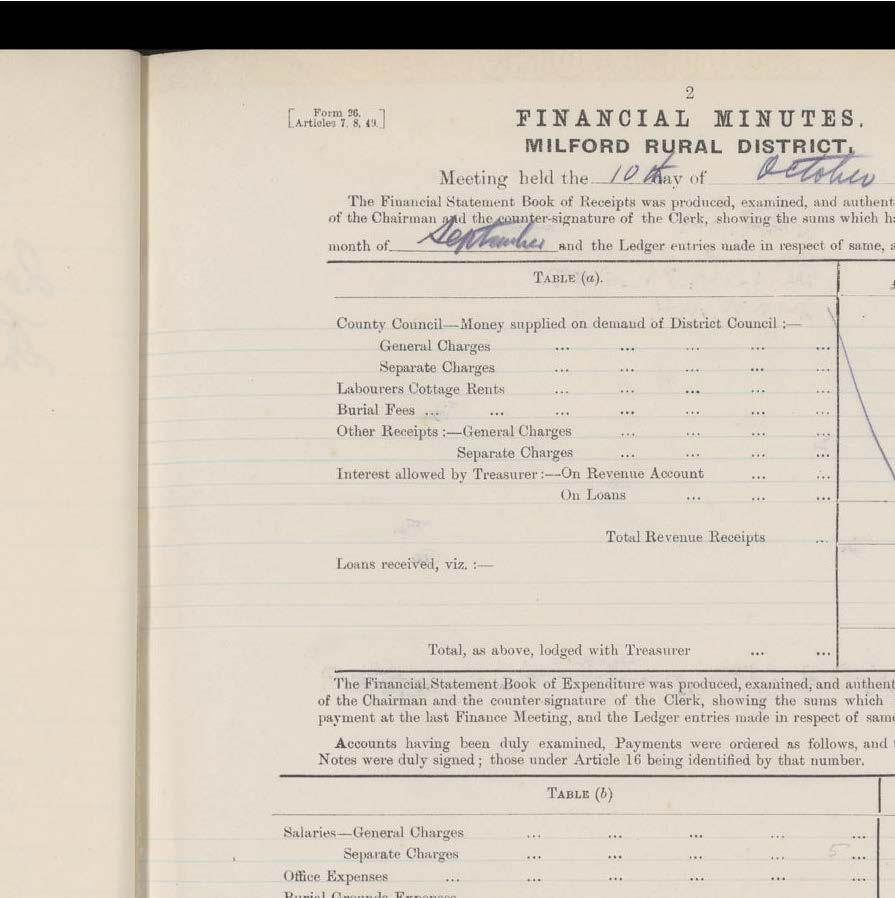 2
[Form 26.
Articles 7, 8, 49.]
FINANCIAL MINUTES.
MILFORD RURAL DISTRICT.
Meeting held the 10th day of October
The Financial Statement Book of Receipts was produced, examined, and authent
of the Chairman and the counter-signature of the Clerk, showing the sums which h
month of September and the Ledger entries made in respect of same, a
TABLE (a).
County Council—Money supplied on demand of District Council :—
General Charges ... ... ... ... ...
Separate Charges ... ... ... ... ...
Labourers Cottage Rents ... ... ... ... ...
Burial Fees ... ... ... ... ... ... ...
Other Receipts :—General Charges ... ... ... ...
Separate Charges ... ... ... ...
Interest allowed by Treasurer :—On Revenue Account ... ...
On Loans ... ... ...
Total Revenue Receipts ...
Loans received, viz. :—
Total, as above, lodged with Treasurer ... ...
The Financial Statement Book of Expenditure was produced, examined, and authent
of the Chairman and the counter signature of the Clerk, showing the sums which
payment at the last Finance Meeting, and the Ledger entries made in respect of same
Accounts having been duly examined, Payments were ordered as follows, and
Notes were duly signed ; those under Article 16 being identified by that number.
TABLE (b)
Salaries—General Charges ... ... ... ... ...
Separate Charges ... ... ... ... 5 ...
Office Expenses ... ... ... ... ... ...
Burial Grounds Expenses